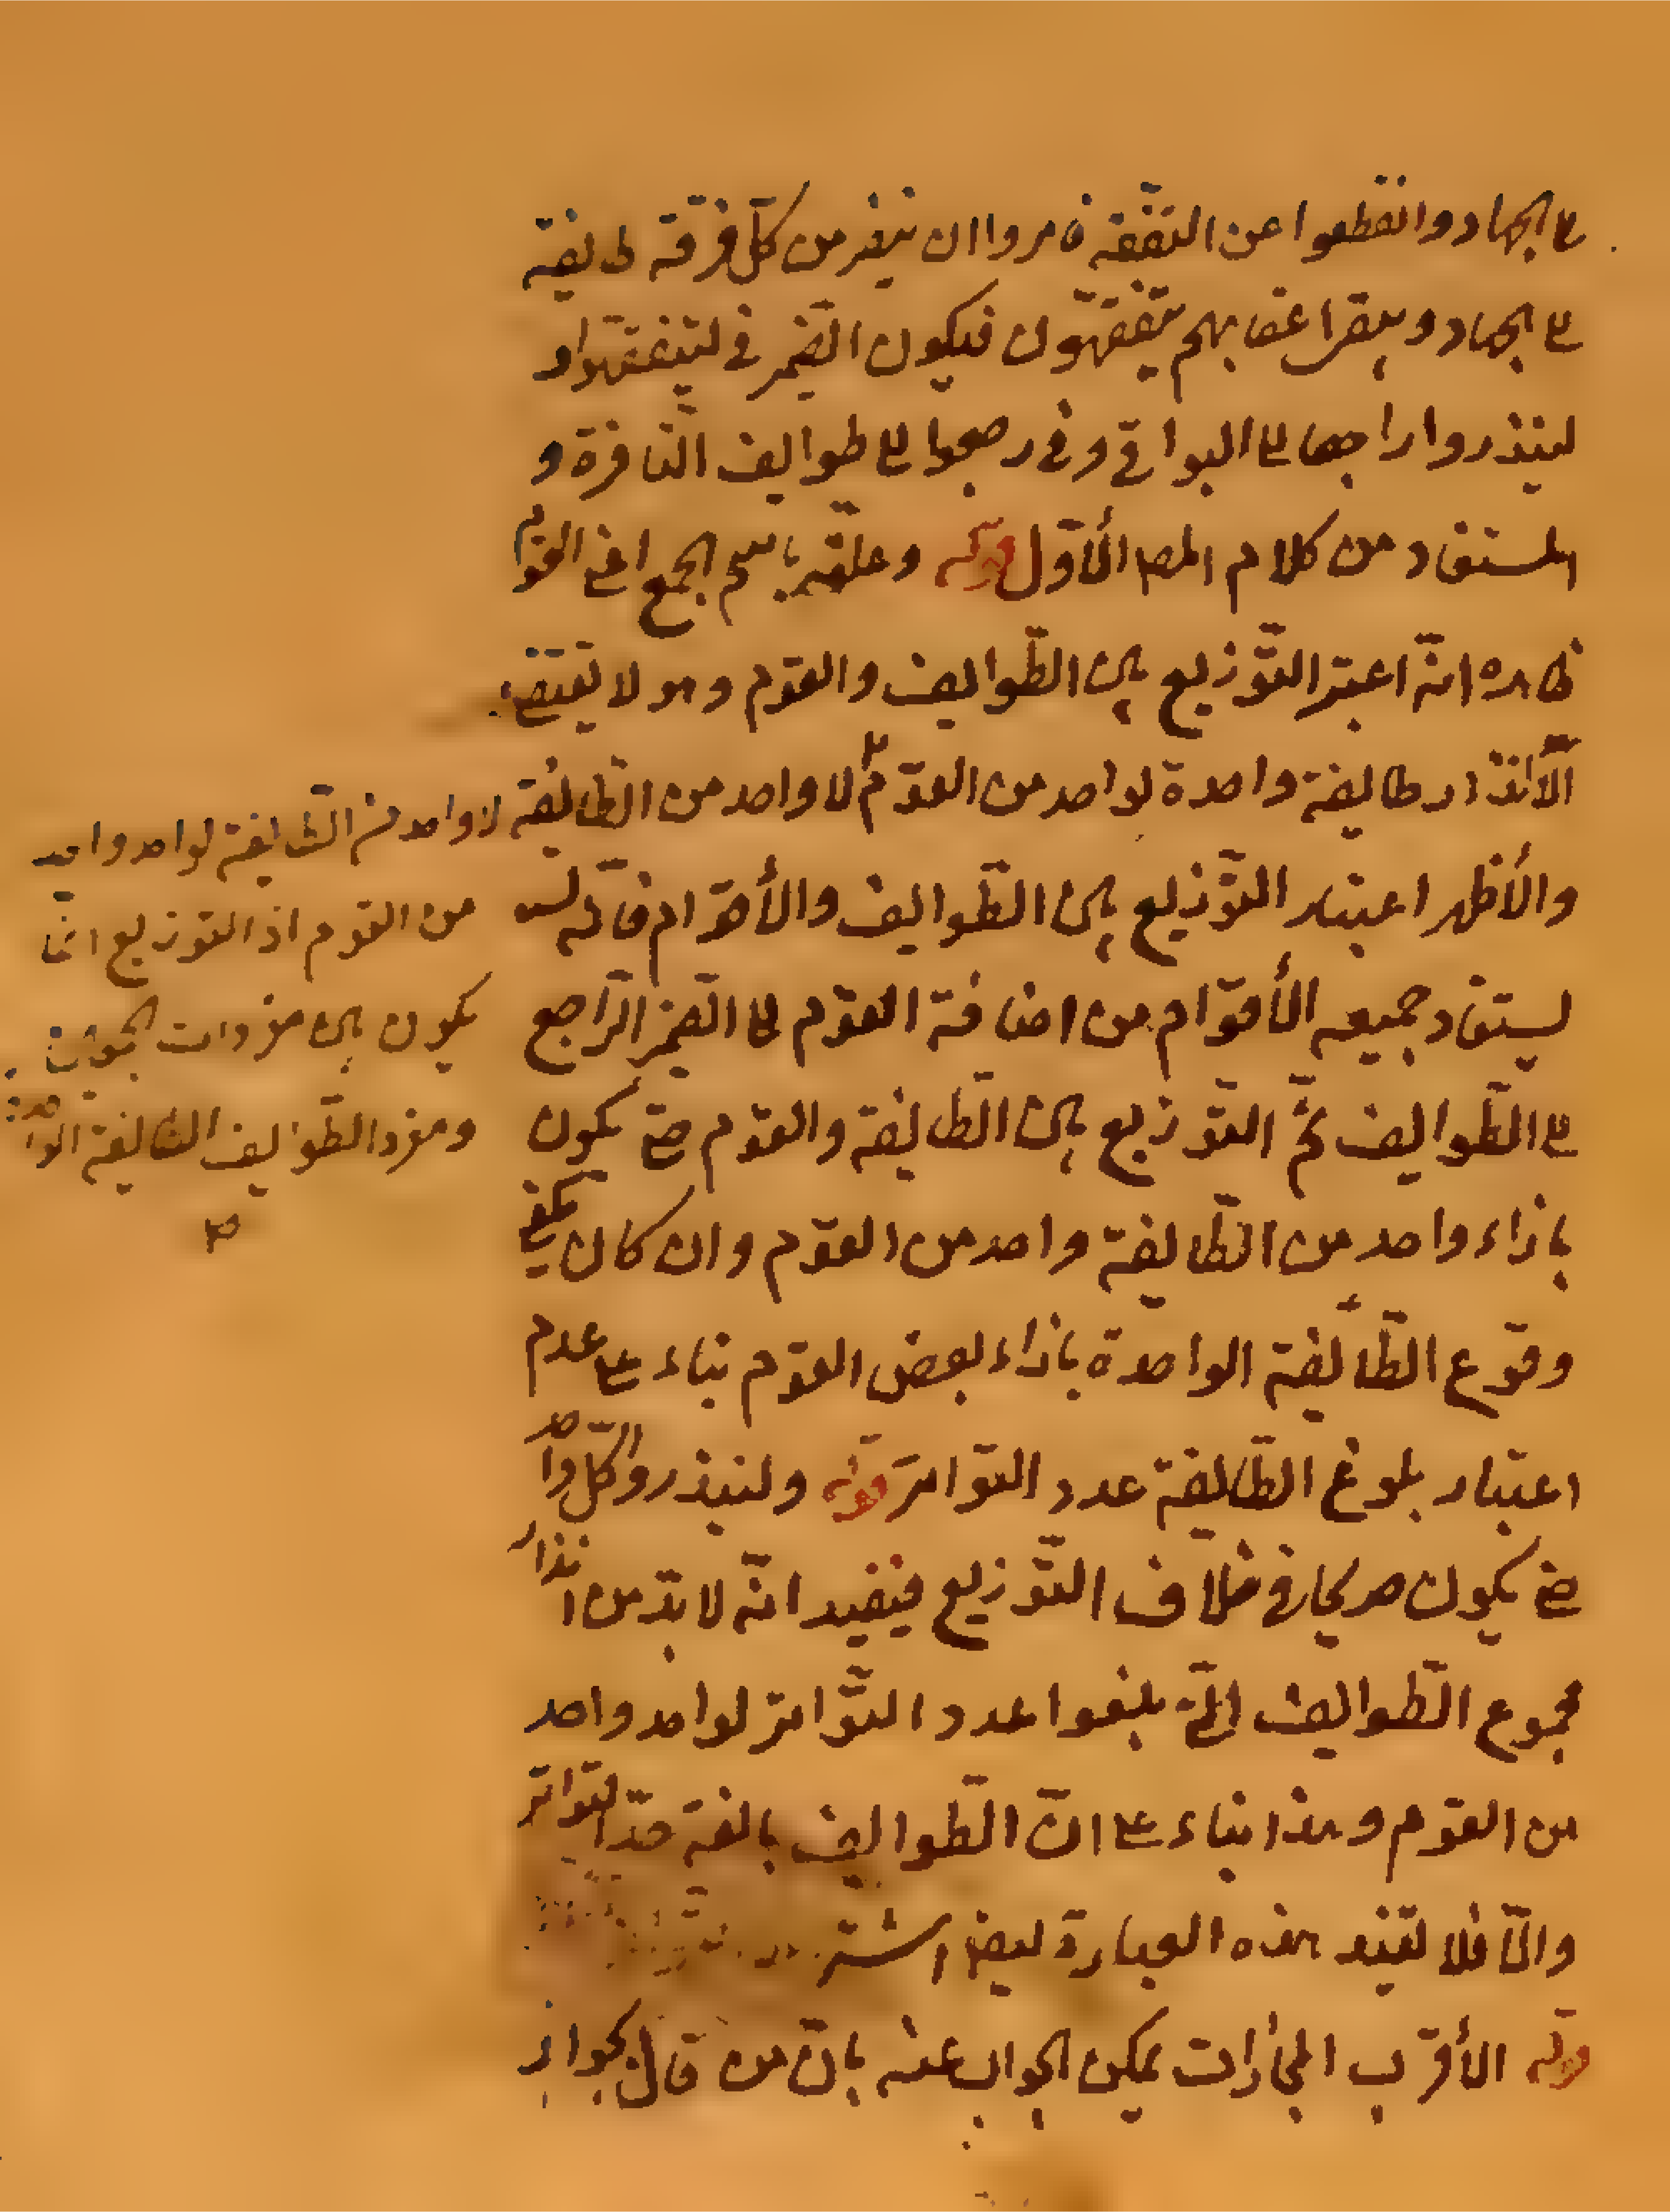 الى الجهاد وانقطعوا عن التفقه فامروا ان ينفر من كلّ فرقة طايفة
الى الجهاد ويبقى اعقابهم يتفقّهون فيكون الضمير فى ليتفقّهوا و
لينذروا راجعا الى البواقى وفى رجعوا الى طوايف النافرة و
المستفاد من كلام المصـ الأوّل قوله وعلقه باسم الجمع اعنى القوم
ظاهره انّه اعتبر التّوزيع بين الطّوايف والقوم وهو لا يقتضى
الّا انذار طايفة واحدة لواحد من القوم لا واحد من الطّايفة
والأظهر اعتبار التّوزيع بين الطّوايف والأقوام فانّه
يستفاد جميعه الأقوام من اضافة القوم الى الضّمير الرّاجع
الى الطّوايف ثمّ التّوزيع بين الطّايفة والقوم حتّى يكون
بازاء واحد من الطّايفة واحد من القوم وان كان يكفى
وقوع الطّايفة الواحدة بازاء بعض القوم بناء على عدم
اعتبار بلوغ الطّايفة عدد التّواتر قوله ولينذروا كلّ واحد
حتى يكون صريحا فى خلاف التّوزيع فيفيد انّه لا بدّ من انذار
مجموع الطّوايف الّتى بلغوا عدد التّواتر لواحد واحد
من القوم وهذا بناء على انّ الطّوايف بالغة حدّ التّواتر
والّا فلا تفيد هذه العبارة ايضا
قوله الأقرب المجازات يمكن الجواب عنه بانّ من قال بجواز
لا واحد من الطّايفة لواحد واحد
من القوم اذ التوزيع انّما
يكون بين مفردات الجمعين
ومفرد الطّوايف الطّايفة الواحدة